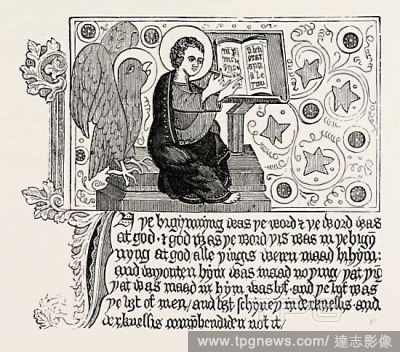 n ye bigynnyng was ye word & ye word was
at god · & god was ye word yis was in ye bigy
nyng at god alle yingis weren maad bi hym:
and wiyouten hym was maad no ying · yat yīg
yat was maad in hym was lyf · and ye lyf was
ye ligt of men / and ligt schyney in derknessis · and
derknessis compꝛehendiden not it /
www.tpgnews.com / 達志影像